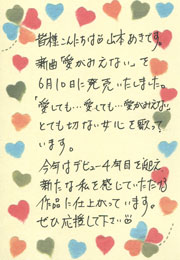 皆様こんにちは☺山本あきです。
新曲「愛がみえない」を
6月10日に発売いたしました。
「愛しても…愛しても…愛がみえない」
とても切ない女心を歌って
います。
今年はデビュー4年目を迎え
新たな私を感じていただける
作品に仕上がっています。
ぜひ応援して下さい☺